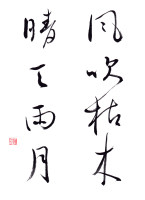 風吹枯木
晴天雨月